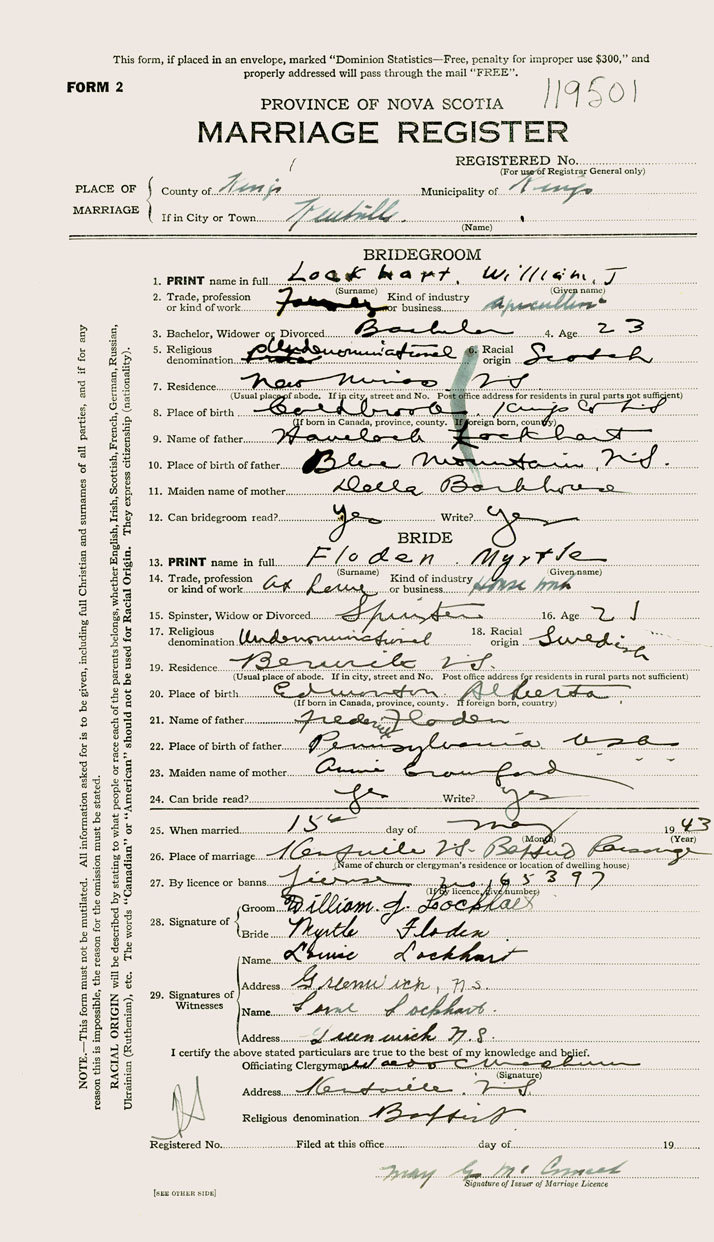 This form, if placed in an envelope, marked "Dominion Statistics—Free, penalty for improper use $300," and
properly addressed will pass through the mail "FREE".
FORM 2
119501
PROVINCE OF NOVA SCOTIA
MARRIAGE REGISTER
REGISTERED No.
(For use of Registrar General only)
PLACE OF MARRIAGE
County of Kings Municipality of Kings
If in City or Town Kentville
(Name)
BRIDEGROOM
1. PRINT name in full Lockhart, William, J
(Surname) (Given name)
2. Trade, profession or kind of work Farmer Kind of industry or business Agriculture
3. Bachelor, Widower or Divorced Bachelor 4. Age 23
5. Religious denomination Undenominational 6. Racial origin Scotch
7. Residence New Minas N.S.
(Usual place of abode. If in city, street and No. Post office address for residents in rural parts not sufficient)
8. Place of birth Coldbrook, Kings Co N.S
(If born in Canada, province, county. If foreign born, country)
9. Name of father Havelock Lockhart
10. Place of birth of father Blue Mountain, N.S.
11. Maiden name of mother Della Barkhouse
12. Can bridegroom read? Yes Write? Yes
BRIDE
13. PRINT name in full Floden. Myrtle
(Surname) (Given name)
14. Trade, profession or kind of work At home Kind of industry or business House work
15. Spinster, Widow or Divorced Spinster 16. Age 21
17. Religious denomination Undenominational 18. Racial origin Swedish
19. Residence Berwick N.S.
(Usual place of abode. If in city, street and No. Post office address for residents in rural parts not sufficient)
20. Place of birth Edmonton Alberta
(If born in Canada, province, county. If foreign born, country)
21. Name of father Frederick Floden
22. Place of birth of father Pennsylvania USA
23. Maiden name of mother Annie Crawford
24. Can bride read? Yes Write? Yes
25. When married 15th day of May 1943
(Month) (Year)
26. Place of marriage Kentville N.S. Baptist Parsonage
(Name of church or clergyman's residence or location of dwelling house)
27. By licence or banns license no. 65397
(If by licence, give number)
28. Signature of Groom William. J. Lockhart
Bride Myrtle Floden
29. Signatures of Witnesses
Name Louise Lockhart
Address Greenwich, N.S.
Name Lockhart.
Address Greenwich N.S.
I certify the above stated particulars are true to the best of my knowledge and belief.
Officiating Clergyman
(Signature)
Address Kentville, N.S.
Religious denomination Baptist
Registered No. Filed at this office day of 19
May G. McCormack
Signature of Issuer of Marriage Licence
[SEE OTHER SIDE]
NOTE.—This form must not be mutilated. All information asked for is to be given, including full Christian and surnames of all parties, and if for any
reason this is impossible, the reason for the omission must be stated.
RACIAL ORIGIN will be described by stating to what people or race each of the parents belongs, whether English, Irish, Scottish, French, German, Russian,
Ukrainian (Ruthenian), etc. The words "Canadian" or "American" should not be used for Racial Origin. They express citizenship (nationality).